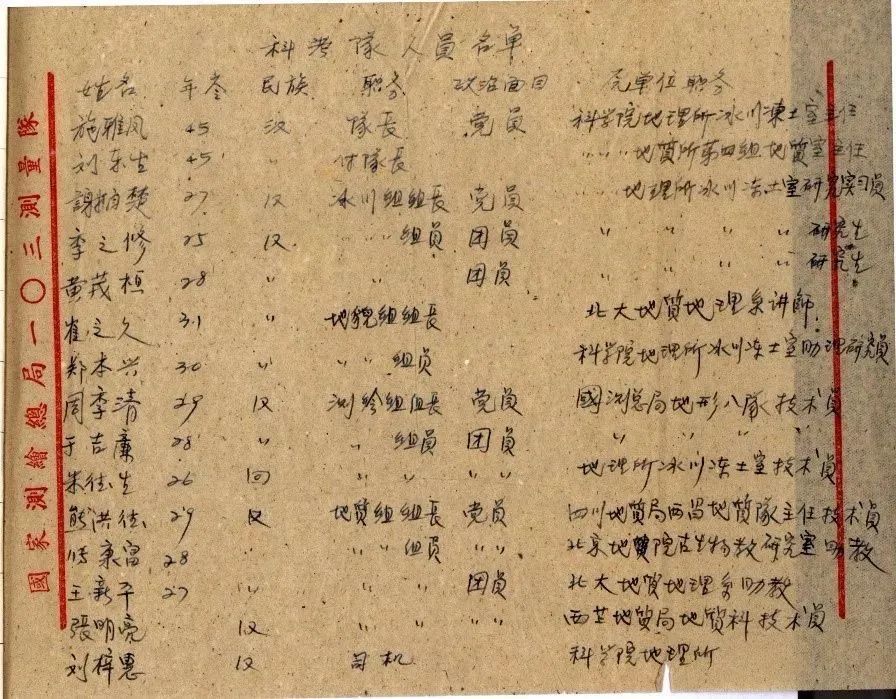 科考隊人員名单
姓名 年令 民族 职务 政治面目 原单位职务
施雅风 45 汉 隊長 党員 科学院地理所冰川凍土室主任
刘东生 45 〃 付隊長 〃〃〃地質所第四组地質室主任
謝自楚 27 汉 冰川组组長 党員 〃地理所冰川冻土室研究实习員
季之修 25 汉 〃〃组員 团員 〃 〃 〃 〃 研究生
黄茂桓 28 〃 团員 〃 〃 〃 〃 研究生
崔之久 31 〃 地貌组组長 北大地質地理系讲師
郑本兴 30 〃 〃〃组員 科学院地理所冰川冻土室助理研究員
周季清 29 汉 测绘组组長 党員 國测总局地形八隊技术員
于吉廉 28 〃 〃组員 团員 〃 〃 〃 〃
朱德生 26 回 〃 〃 〃〃 地理所冰川冻土室技术員
熊洪德 29 汉 地質组组長 党員 四川地質局西昌地質隊主任技术員
康富 28 〃 〃组員 〃〃 北京地質院古生物教研究室助教
王新平 27 〃 〃 〃 团員 北大地質地理系助教
張明亮 汉 〃 〃 〃 〃 西芷地質局地質科技术員
刘梓惠 汉 司机 科学院地理所
國家測繪總局一〇三測量隊